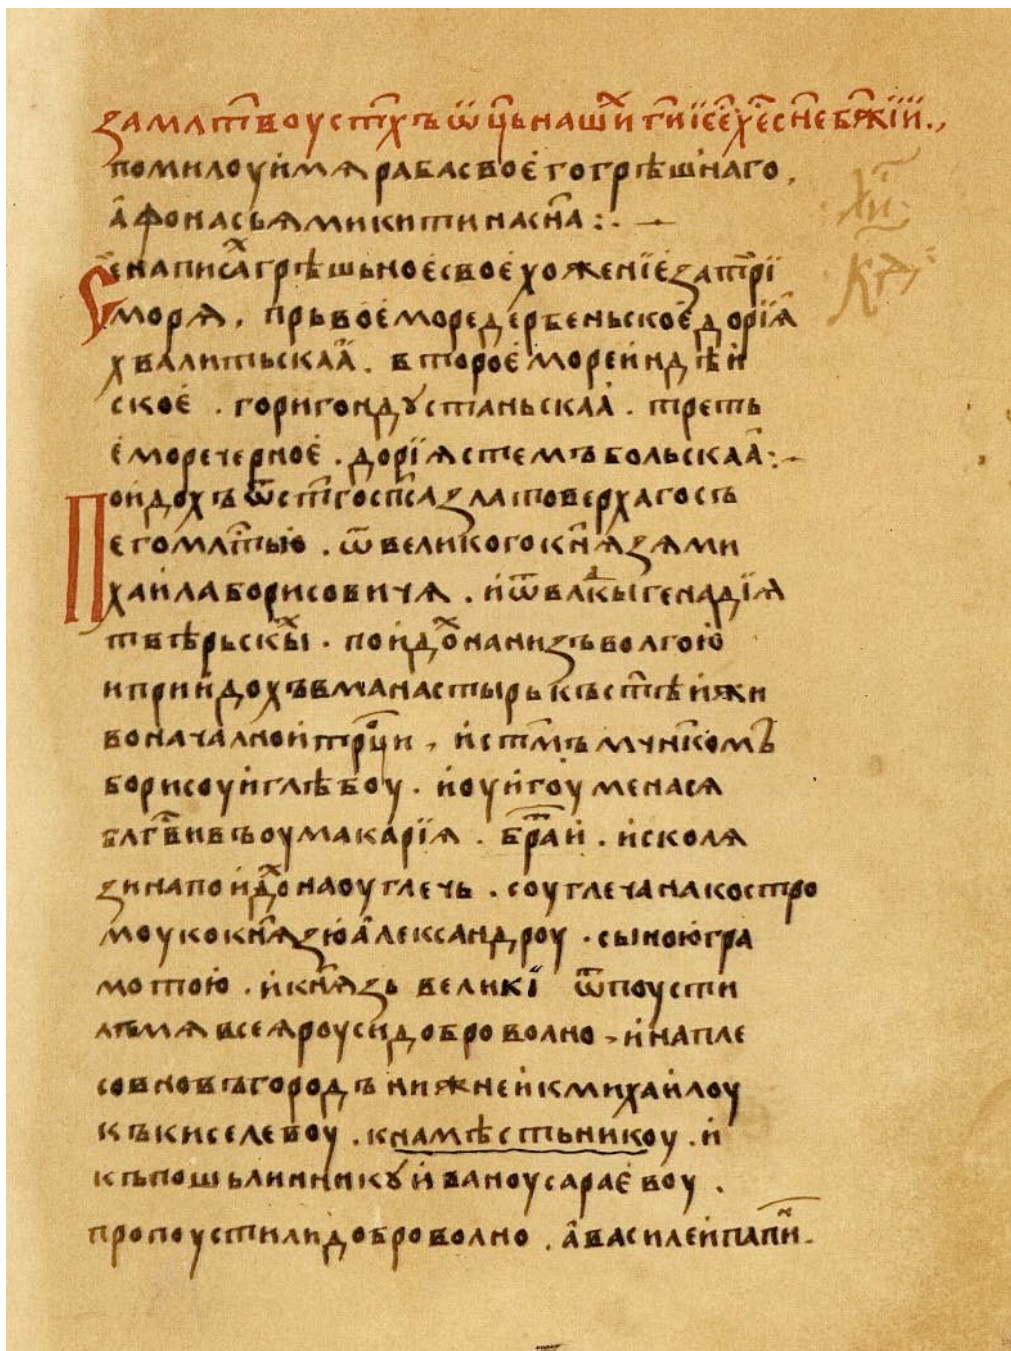 за млтвоу стхъ ѿць нашихъ ги їсе хе сне бжїи.,
помилоуи мѧ раба своего грѣшнаго,
аѳонасьѧ микитина сна :. —
Се написах грѣшьное свое хоженїе за трї
морѧ, прьвое море дербеньское дорїѧ
хвалитьскаа. второе море индѣи
ское. гори гондустаньскаа. треть
е море черное. дорїѧ стемъбольскаа :. —
Поидохъ ѿ стго спса златоверхаго съ
его млтью. ѿ великого кнѧзѧ ми
хаила борисовичѧ. и ѿ влкы генадїѧ
твѣрьскых. поидох на низъ волгою
и приидохъ в манастырь къ стѣи жи
воначалнои трци, и стмъ мчнкомъ
борисоу и глѣбоу. и оу игоумена сѧ
блгвивъ оу макарїѧ. братии. и с колѧ
зина поидох на оуглечь. с оуглеча на костро
моу ко кнѧзю александроу. с ыною гра
мотою. и кнѧзь великї ѿпоусти
лъ мѧ всеѧ роуси доброволно. и на пле
со в новъгородъ нижнеи к михаилоу
къ киселевоу. к намѣстьникоу. и
къ пошьлинникꙋ иваноу сараевоу.
пропоустили доброволно. а василеи папин.